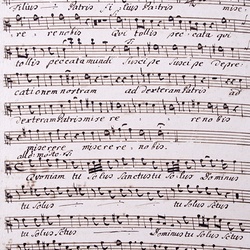 Filius Patris Filius Patris mise
re re nobis Qui tollis peccata qui
tollis peccata mundi Suscipe Suscipe depre
cationem nostram ad dexteram Patris ad
dexteram Patris mise re re nobis
miserere miserere nobis
Quoniam tu Solus Sanctus tu Solus Dominus
tu Solus Sctus tu Solus
tu Solus Sctus Dominus tu Solus Sctus